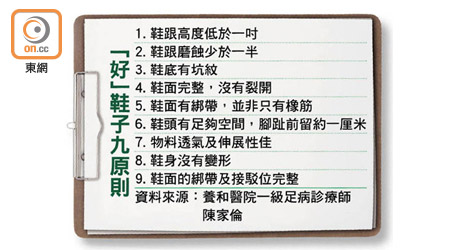 on.cc
東網
「好」鞋子九原則
1. 鞋跟高度低於一吋
2. 鞋跟磨蝕少於一半
3. 鞋底有坑紋
4. 鞋面完整，沒有裂開
5. 鞋面有綁帶，並非只有橡筋
6. 鞋頭有足夠空間，腳趾前留約一厘米
7. 物料透氣及伸展性佳
8. 鞋身沒有變形
9. 鞋面的綁帶及接駁位完整
資料來源：養和醫院一級足病診療師
陳家倫